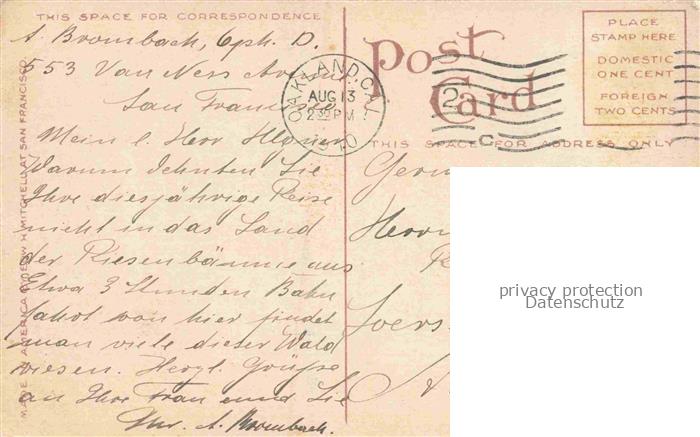 THIS SPACE FOR CORRESPONDENCE
A. Brombach, Cph. D.
553 Van Ness Avenue
San Francisco
Mein l. Herr
Warum dehnten Sie
Ihre diesjährige Reise
nicht in das Land
der Riesenbäume aus
Etwa 3 Stunden Bahn
fahrt von hier findet
man viele dieser Wald
riesen. Herzl. Grüße
an Ihre Frau und Sie
Ihr. A. Brombach.
MADE IN AMERICA BY EDW. H. MITCHELL AT SAN FRANCISCO
Post Card
OAKLAND, CAL.
AUG 13
2 30 PM
2
C
PLACE
STAMP HERE
DOMESTIC
ONE CENT
FOREIGN
TWO CENTS
THIS SPACE FOR ADDRESS ONLY
Germ
Herrn
privacy protection
Datenschutz